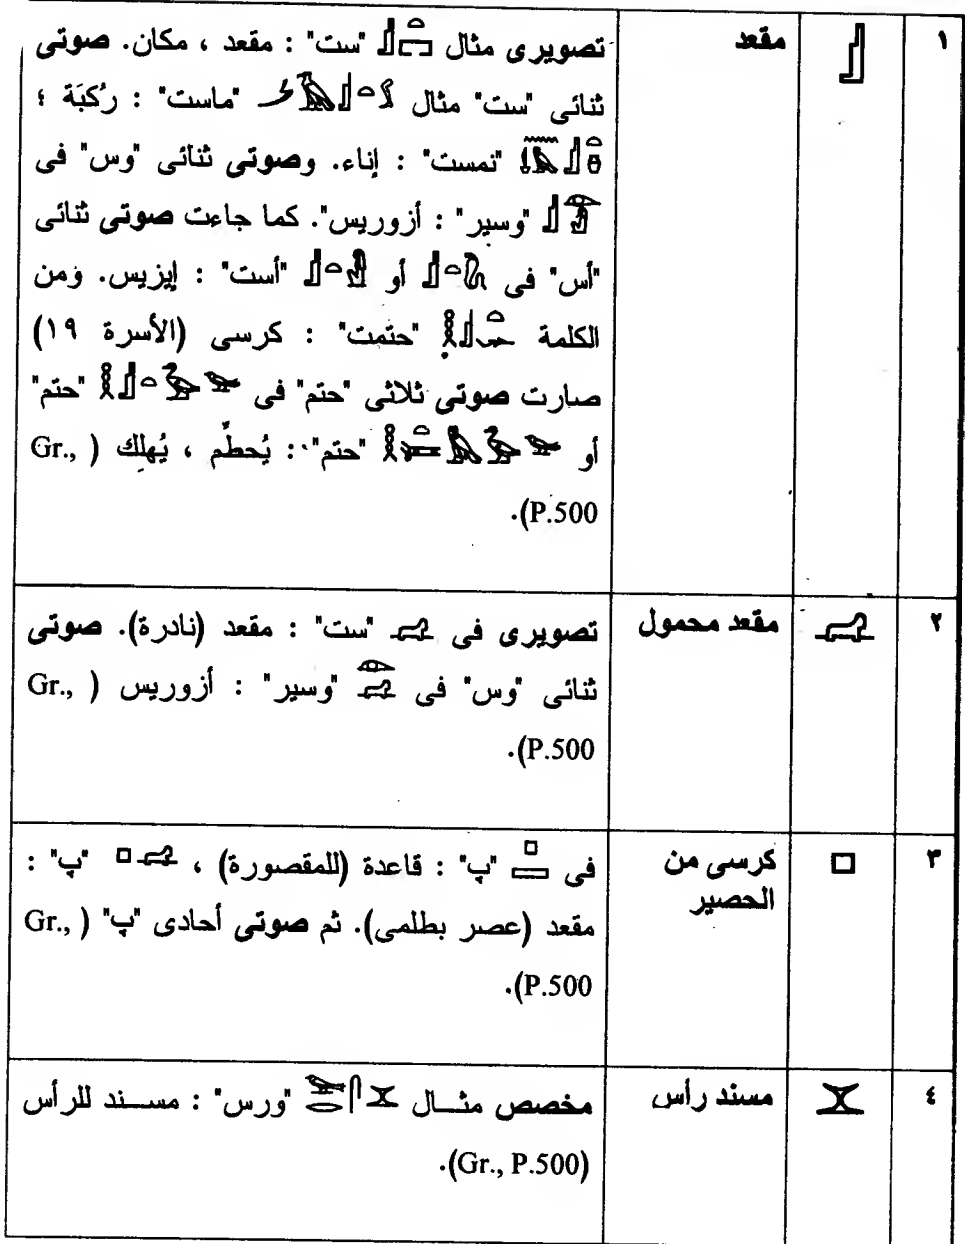 ١ مقعد تصويرى مثال 𓊨𓏏𓉐 "ست" : مقعد ، مكان. صوتى
ثنائى "ست" مثال "ماست" : رُكبَة ؛
"نمست" : إناء. وصوتى ثنائى "وس" فى
"وسير" : أزوريس". كما جاءت صوتى ثنائى
"أس" فى أو "أست" : إيزيس. ومن
الكلمة "حتمت" : كرسى (الأسرة ١٩)
صارت صوتى ثلاثى "حتم" فى "حتم"
أو "حتم" : يُحطِّم ، يُهلِك (Gr.,
P.500).
٢ مقعد محمول تصويرى فى "ست" : مقعد (نادرة). صوتى
ثنائى "وس" فى "وسير" : أزوريس (Gr.,
P.500).
٣ كرسى من فى "پ" : قاعدة (للمقصورة) ، "پ" :
الحصير مقعد (عصر بطلمى). ثم صوتى أحادى "پ" (Gr.,
P.500).
٤ مسند رأس مخصص مثال "ورس" : مسند للرأس
(Gr., P.500).